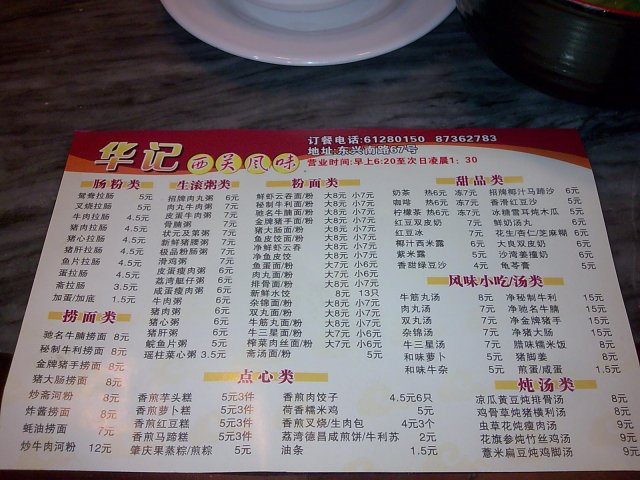 华记 西关风味
订餐电话:61280150 87362783
地址:东兴南路67号
营业时间:早上6:20至次日凌晨1:30
肠粉类
鸳鸯拉肠 5元
叉烧拉肠 5元
牛肉拉肠 4.5元
猪肉拉肠 4.5元
猪心拉肠 4.5元
猪肝拉肠 4.5元
鱼片拉肠 4.5元
蛋拉肠 4.5元
斋拉肠 3.5元
加蛋/加底 1.5元
捞面类
驰名牛腩捞面 8元
秘制牛利捞面 8元
金牌猪手捞面 8元
猪大肠捞面 8元
炒斋河粉 8元
炸酱捞面 8元
蚝油捞面 7元
炒牛肉河粉 12元
生滚粥类
招牌肉丸粥 6元
肉丸牛肉粥 7元
皮蛋牛肉粥 7元
骨腩粥 7元
状元及第粥 7元
新鲜猪腰粥 7元
极品粉肠粥 7元
滑鸡粥 7元
皮蛋瘦肉粥 6元
荔湾艇仔粥 6元
咸蛋瘦肉粥 6元
牛肉粥 6元
猪肉粥 6元
猪心粥 6元
猪肝粥 6元
鲩鱼片粥 5元
瑶柱菜心粥 3.5元
粉面类
鲜虾云吞面/粉 大8元 小7元
秘制牛利面/粉 大8元 小7元
驰名牛腩面/粉 大8元 小7元
金牌猪手面/粉 大8元 小7元
猪大肠面/粉 大8元 小7元
鱼皮饺面/粉 大8元 小7元
净鲜虾云吞 大8元 小7元
净鱼皮饺 大8元 小7元
鱼蛋面/粉 大7元 小6元
肉丸面/粉 大7元 小6元
排骨面/粉 大8元 小7元
新鲜水饺 8元 13只
杂锦面/粉 大8元 小7元
双丸面/粉 大8元 小7元
牛筋丸面/粉 大8元 小7元
牛三星面/粉 大7元 小6元
榨菜肉丝面/粉 大7元 小6元
斋汤面/粉 5元
甜品类
奶茶 热6元 冻7元
咖啡 热6元 冻7元
柠檬茶 热6元 冻7元
红豆双皮奶 7元
红豆冰 7元
椰汁西米露 6元
紫米露 5元
香甜绿豆沙 4元
招牌椰汁马蹄沙 6元
香滑红豆沙 5元
冰糖雪耳炖木瓜 5元
鲜奶汤丸 6元
花生/杏仁/芝麻糊 6元
大良双皮奶 6元
沙湾姜撞奶 6元
龟苓膏 5元
风味小吃/汤类
牛筋丸汤 8元
肉丸汤 7元
双丸汤 7元
杂锦汤 7元
牛三星汤 7元
和味萝卜 5元
和味牛杂 5元
净秘制牛利 15元
净驰名牛腩 15元
净金牌猪手 15元
净猪大肠 15元
腊味糯米饭 8元
猪脚姜 8元
煎蛋/咸蛋 1.5元
点心类
香煎芋头糕 5元3件
香煎萝卜糕 5元3件
香煎红豆糕 5元3件
香煎马蹄糕 5元3件
肇庆果蒸粽/煎粽 5元
香煎肉饺子 4.5元6只
荷香糯米鸡 5元
香煎叉烧/生肉包 4元3个
荔湾德昌咸煎饼/牛利苏 2元
油条 1.5元
炖汤类
凉瓜黄豆炖排骨汤 8元
鸡骨草炖猪横利汤 8元
虫草花炖瘦肉汤 9元
花旗参炖竹丝鸡汤 9元
薏米扁豆炖鸡脚汤 9元